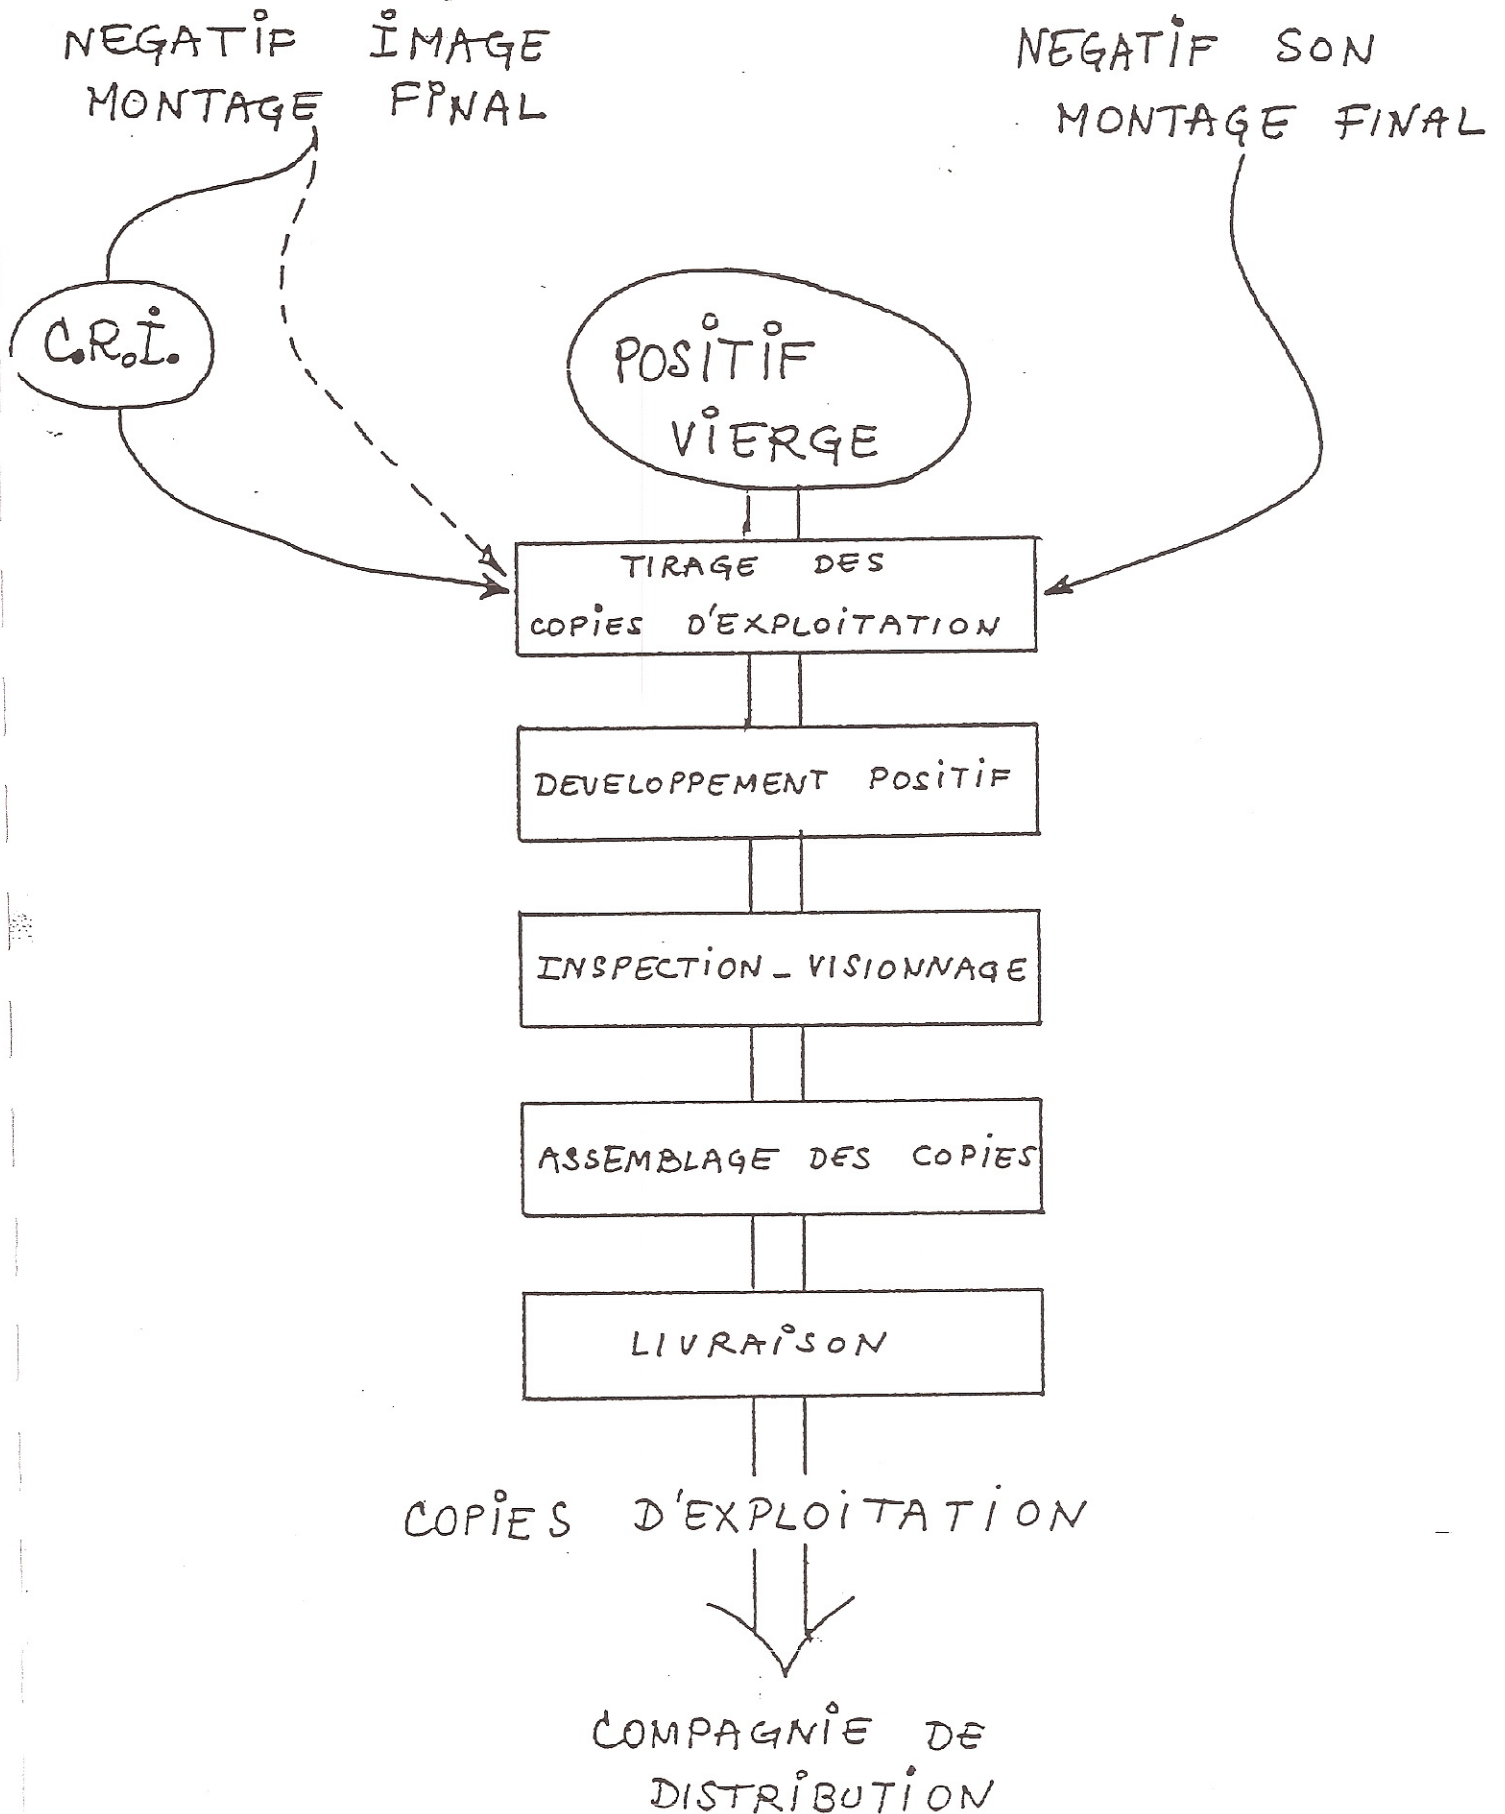 NEGATIF IMAGE
MONTAGE FINAL
NEGATIF SON
MONTAGE FINAL
C.R.I.
POSITIF
VIERGE
TIRAGE DES
COPIES D'EXPLOITATION
DEVELOPPEMENT POSITIF
INSPECTION - VISIONNAGE
ASSEMBLAGE DES COPIES
LIVRAISON
COPIES D'EXPLOITATION
COMPAGNIE DE
DISTRIBUTION